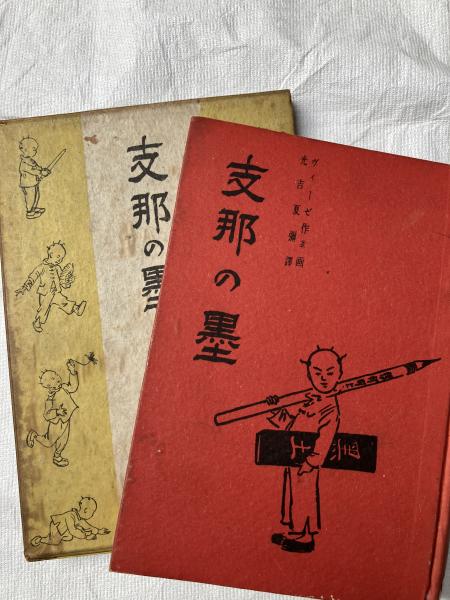 支那の墨
支那の墨
ヴィーゼ作並畫
光吉夏彌譯